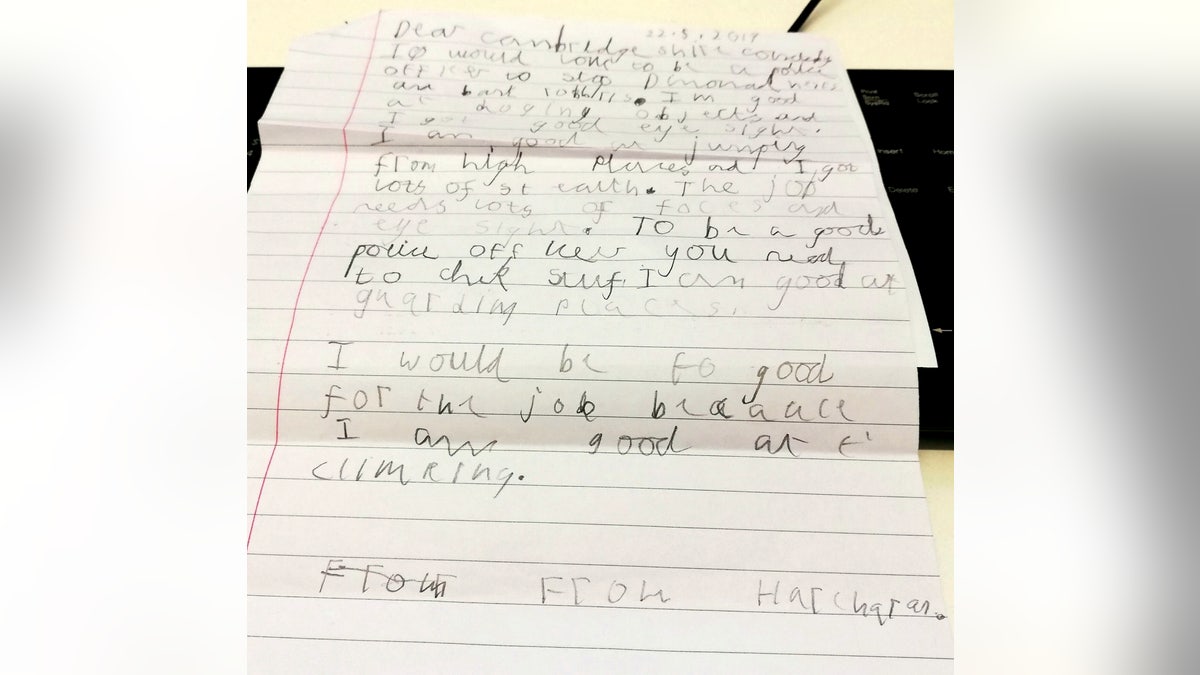 22.5.2017
Dear cambridge shire
I would to be a police
officer to stop
an bank I'm good
at doging objects and
I got good eye sight.
I am good at jumping
from high places and I got
lots of st ealth. The job
needs lots of foces and
eye sight. TO be a good
police off icer you need
to chek stuf. I am good at
guarding places.
I would be so good
for the job
I am good at
climeing.
From From Harcharan.
Insert
Home
Delete
Scroll
Lock